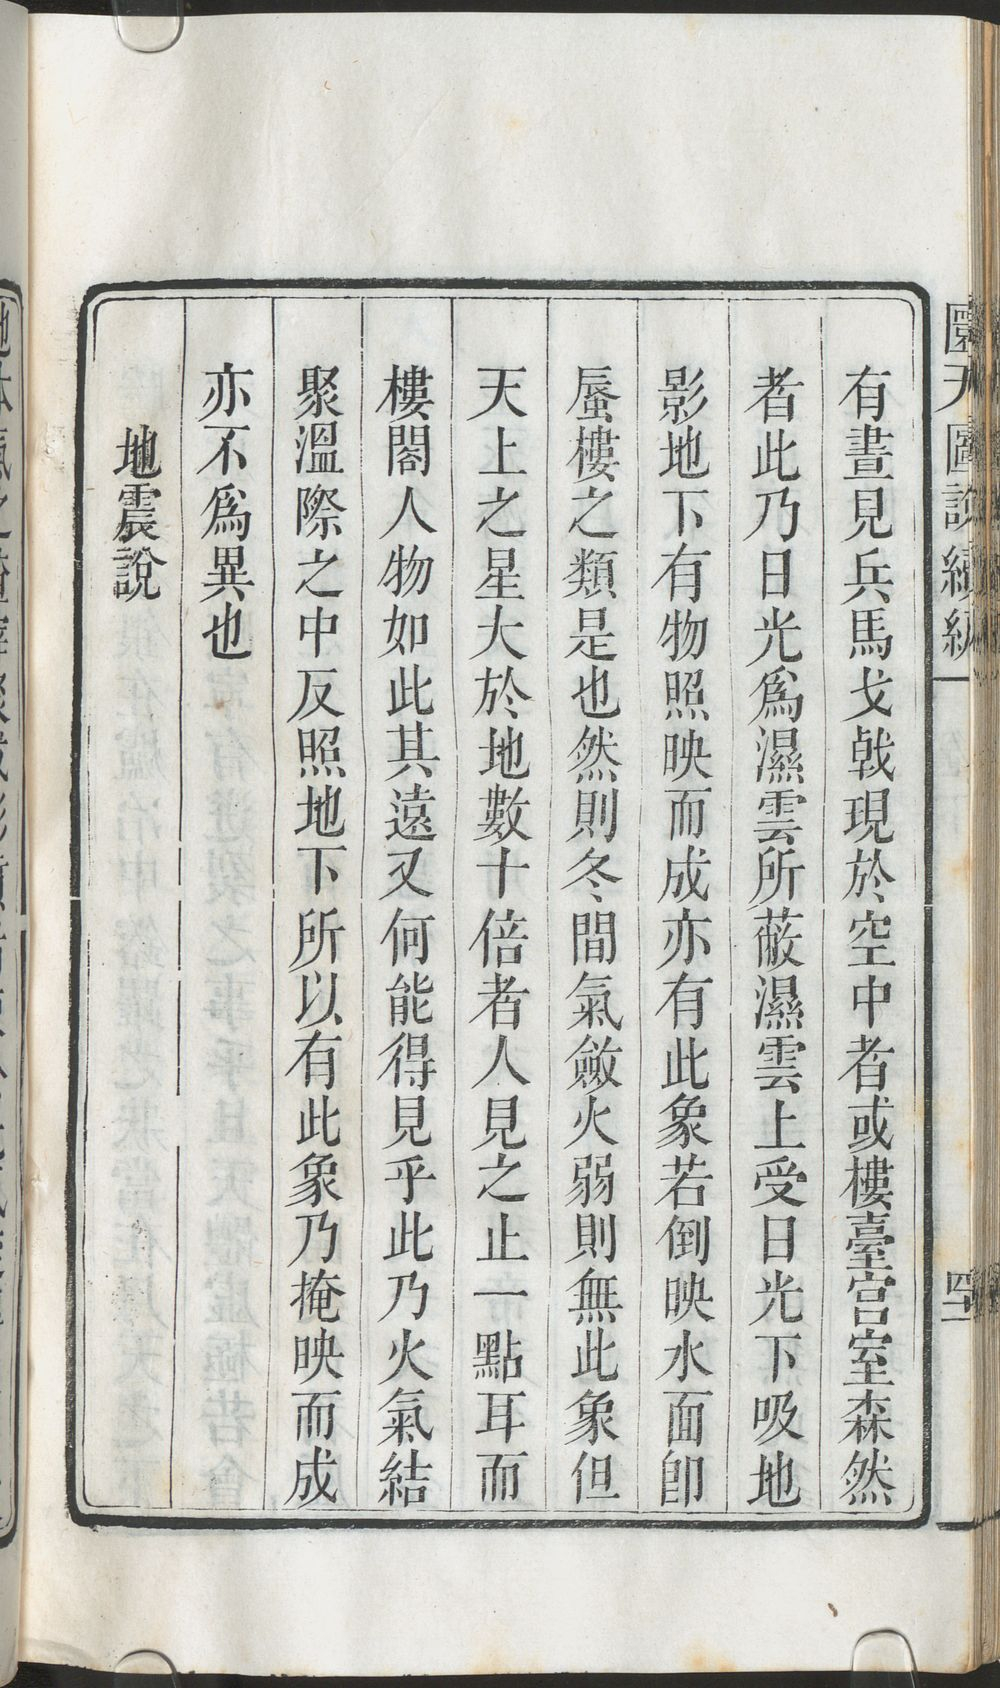 有晝見兵馬戈戟現於空中者或樓臺宮室森然
者此乃日光爲濕雲所蔽濕雲上受日光下吸地
影地下有物照映而成亦有此象若倒映水面卽
蜃樓之類是也然則冬間氣斂火弱則無此象但
天上之星大於地數十倍者人見之止一點耳而
樓閣人物如此其遠又何能得見乎此乃火氣結
聚溫際之中反照地下所以有此象乃掩映而成
亦不爲異也
地震說
圜天圖說續編